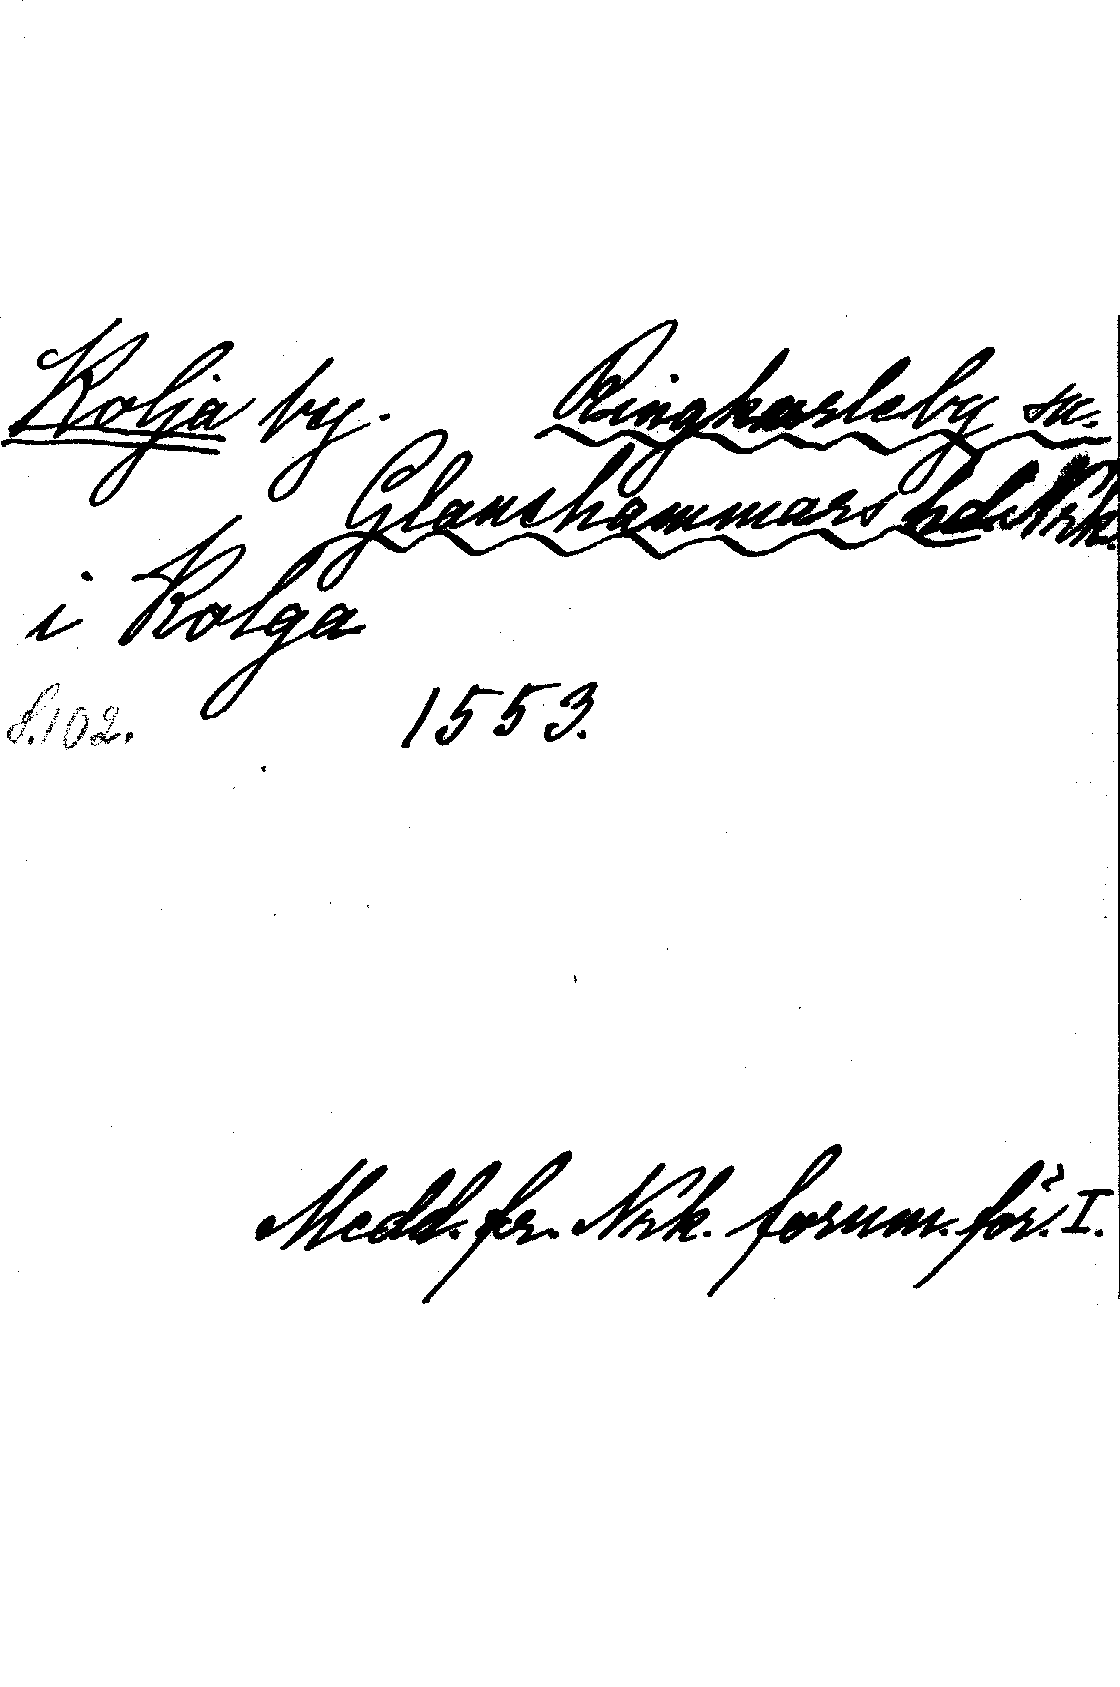 Kolja by. Ringkarleby sn.
Glanshammars hd. Nrk.
i Kolga
S. 102. 1553.
Medd. fr. Nrk. fornm. för. I.